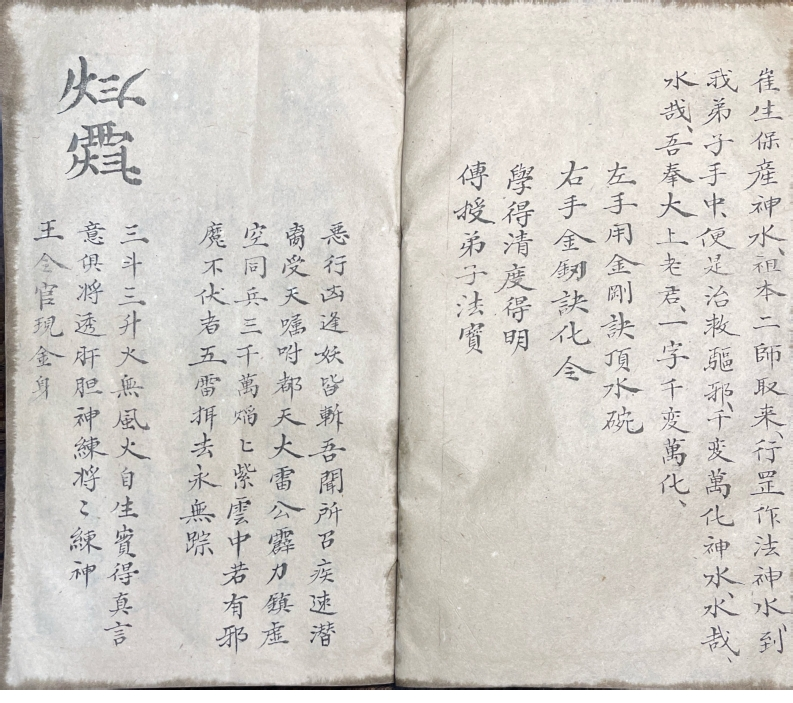 崔生保產神水、祖本二師取来、行罡作法神水到
我弟子手中、便是治救驅邪、千変萬化神水、水哉、
水哉、吾奉大上老君、一字千変萬化、
左手用金剛訣頂水碗
右手金剱訣化令
學得清度得明
傳授弟子法寶
悪行凶逢妖皆斬吾聞所召疾速潜
受天嘱咐都天大雷公霹力鎮虛
空同兵三千萬焰匕紫雲中若有邪
魔不伏者五雷拝去永無踪
三斗三升火無風火自生實得真言
意俱将透肝胆神練将〻練神
王令官現金身